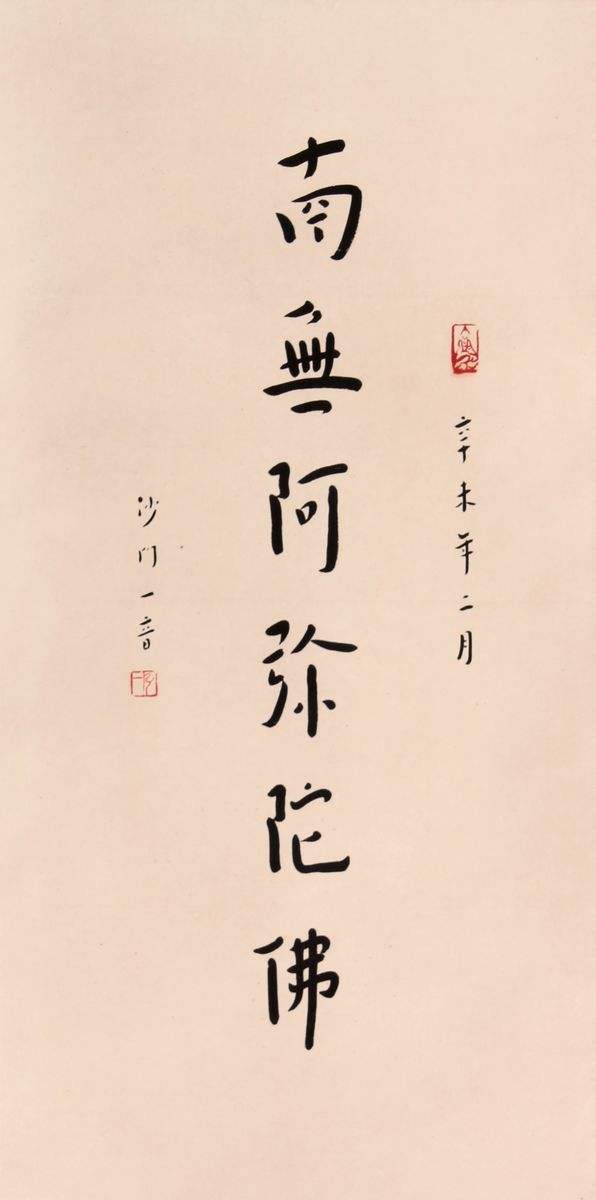 辛未年二月
南無阿弥陀佛
沙門一音